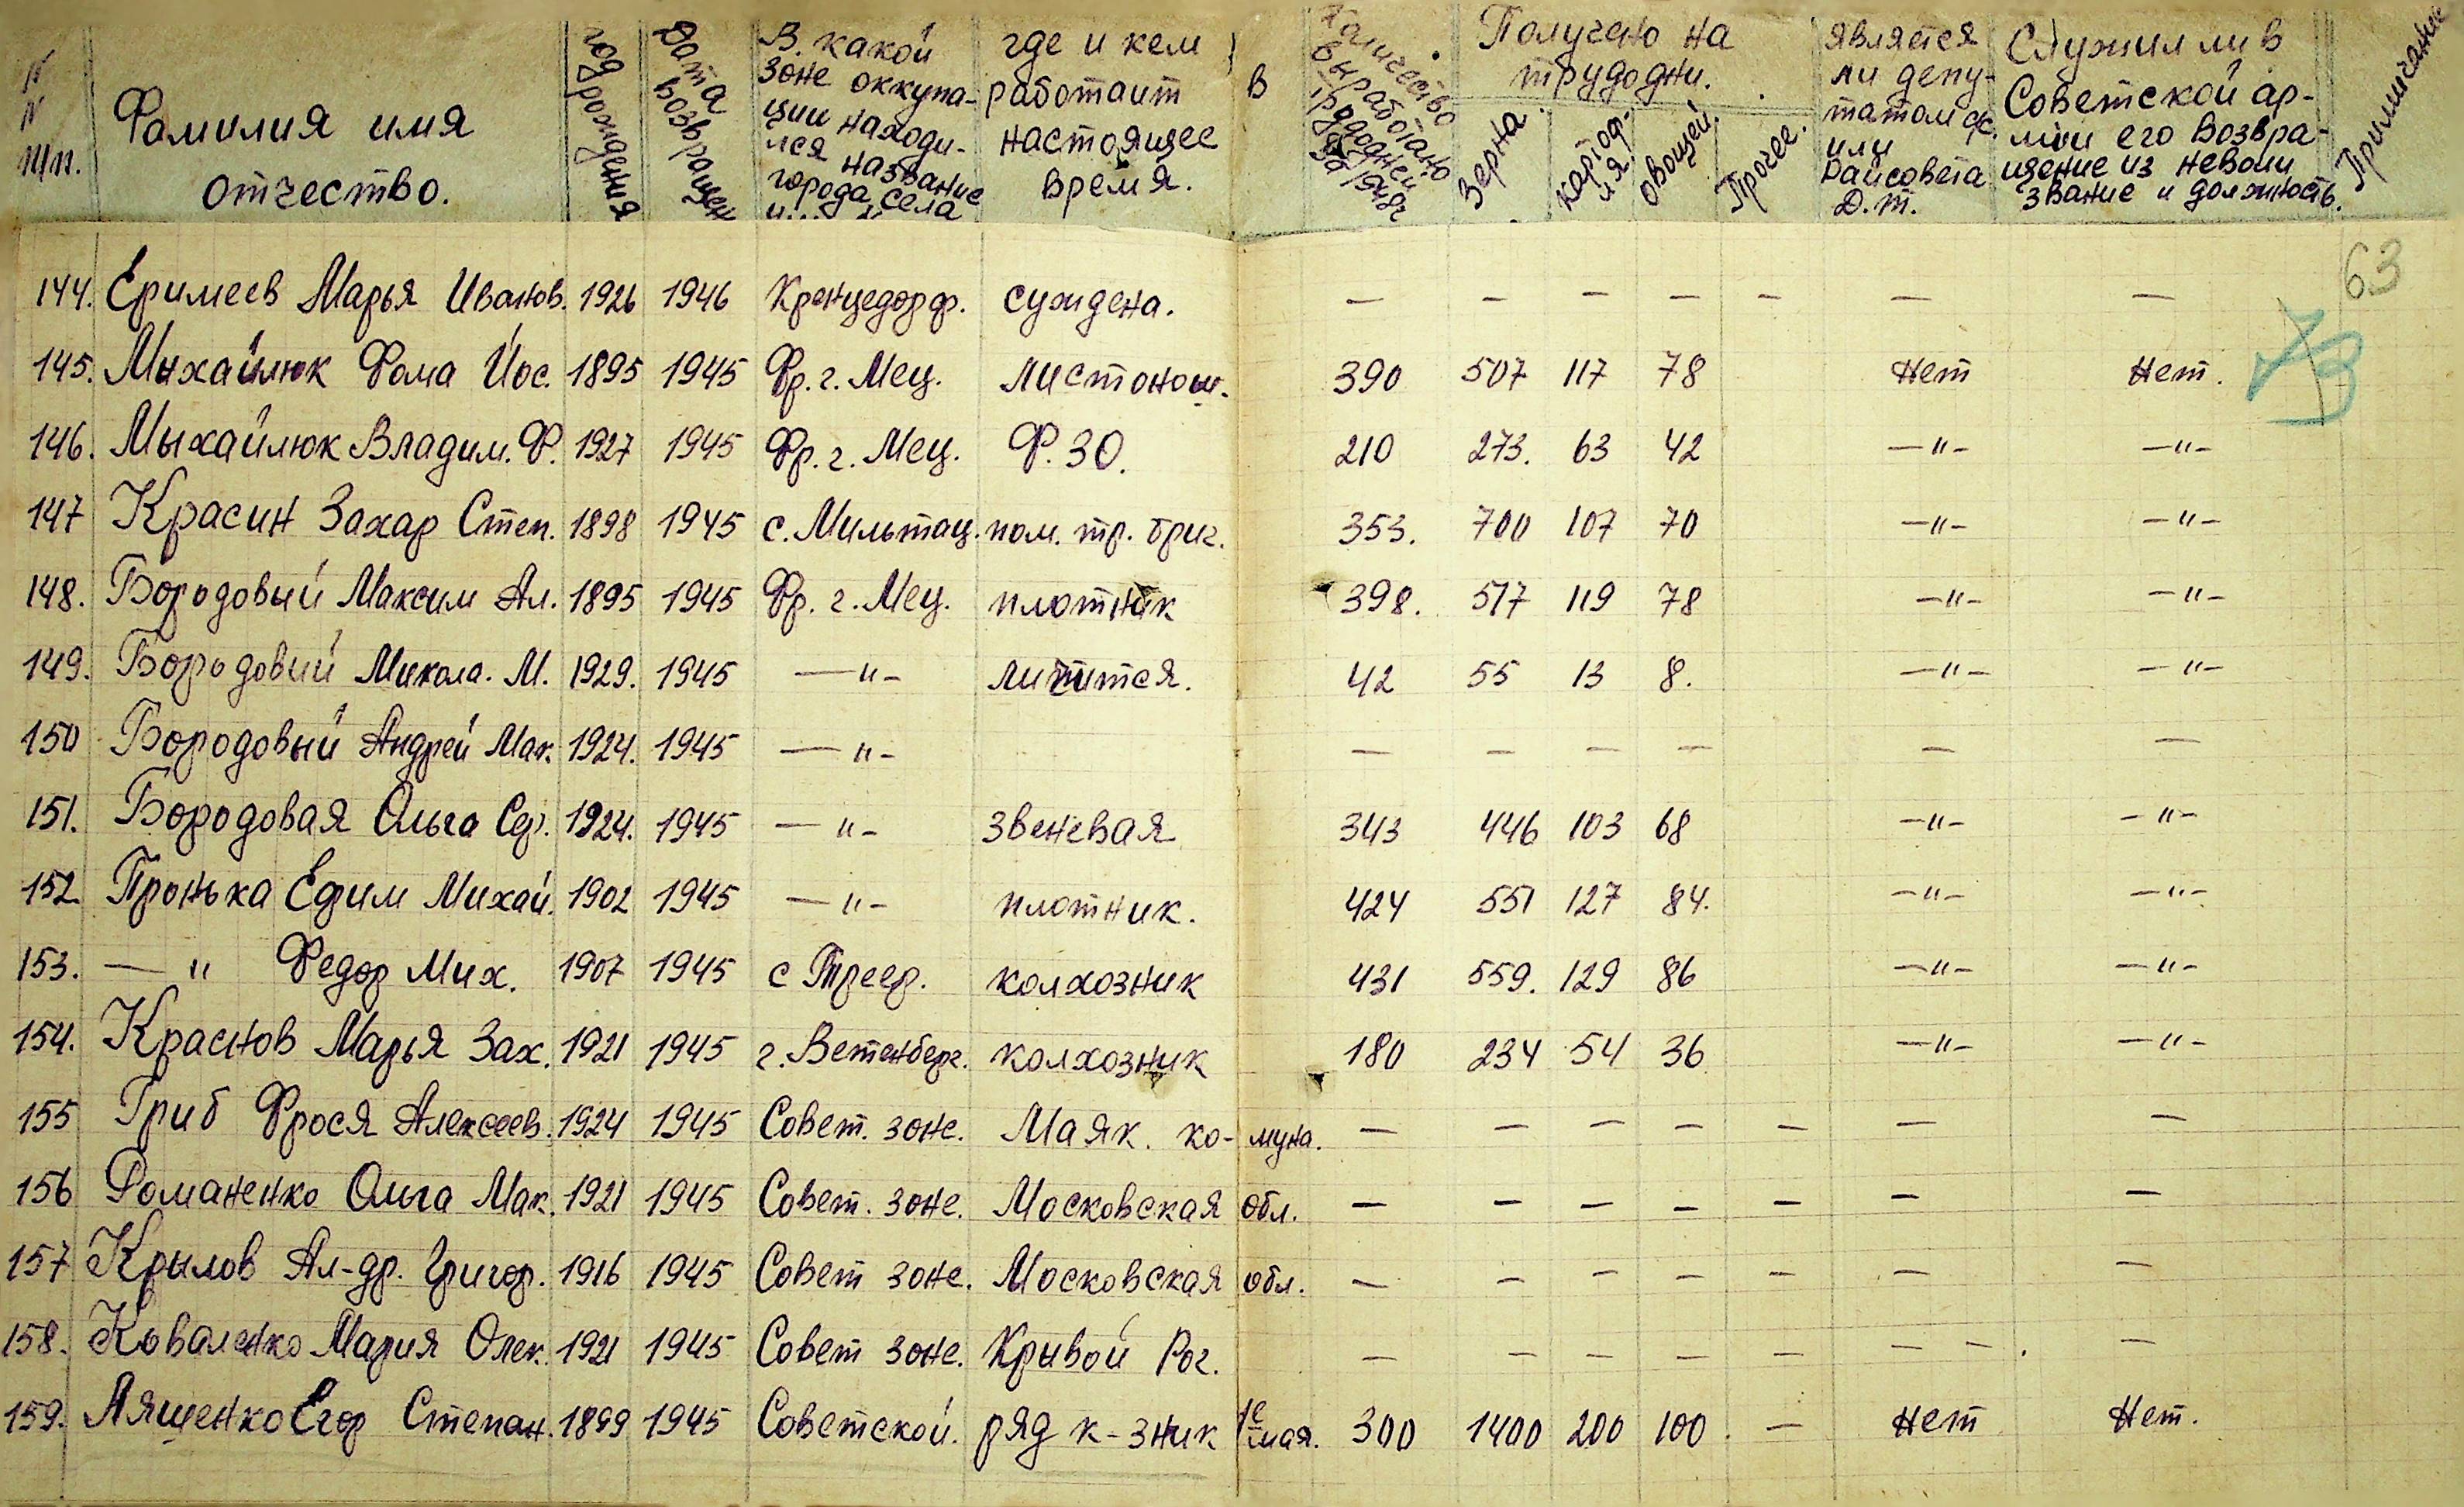 № № п/п.
Фамилия имя отчество.
год рождения
Дата возвращен
В какой зоне оккупации находился название города, села
где и кем работаит в настоящее время.
Количество выработано трудодней за
Получено на трудодни.
Зерна.
картоф-ля
овощей.
Прочее.
является ли депутатом с/с. или Райсовета Д.т.
Служил ли в Советской армии его возвращение из неволи звание и должность.
Примичание
63
73
144. Еримеев Марья Иванов. 1926 1946 Кренцедорф. суждена. — — — — — — —
145. Мыхайлюк Фома Йос. 1895 1945 Фр. г. Мец. листонош. 390 507 117 78 Нет Нет.
146. Мыхайлюк Владим. Ф. 1927 1945 Фр. г. Мец. Ф.ЗО. 210 273. 63 42 —"— —"—
147 Красин Захар Степ. 1898 1945 с. Мильтац. пом. тр. бриг. 353. 700 107 70 —"— —"—
148. Бородовый Максим Ал. 1895 1945 Фр. г. Мец. плотник 398. 517 119 78 —"— —"—
149. Бородовий Микола. М. 1929. 1945 —"— личится. 42 55 13 8. —"— —"—
150 Бородовый Андрей Мак. 1924. 1945 —"— — — — — — —
151. Бородовая Ольга Сер. 1924. 1945 —"— звеневая 343 446 103 68 —"— —"—
152. Пронька Ефим Михай. 1902 1945 —"— плотник. 424 551 127 84. —"— —"—
153. —" Федор Мих. 1907 1945 с Треер. колхозник 431 559. 129 86 —"— —"—
154. Краснов Марья Зах. 1921 1945 г. Ветенберг. колхозник 180 234 54 36 —"— —"—
155 Гриб Фрося Алексеев. 1924 1945 Совет. зоне. Маяк. ко-муна. — — — — — — —
156 Романенко Ольга Мак. 1921 1945 Совет. зоне. Московская обл. — — — — — — —
157 Крылов Ал-др. Григор. 1916 1945 Совет зоне. Московская обл. — — — — — — —
158. Коваленко Мария Олек. 1921 1945 Совет зоне. Крывой Рог. — — — — — — — —
159. Лященко Егор Степан. 1899 1945 Советской. ряд к-зник 1е мая. 300 1400 200 100 — Нет Нет.